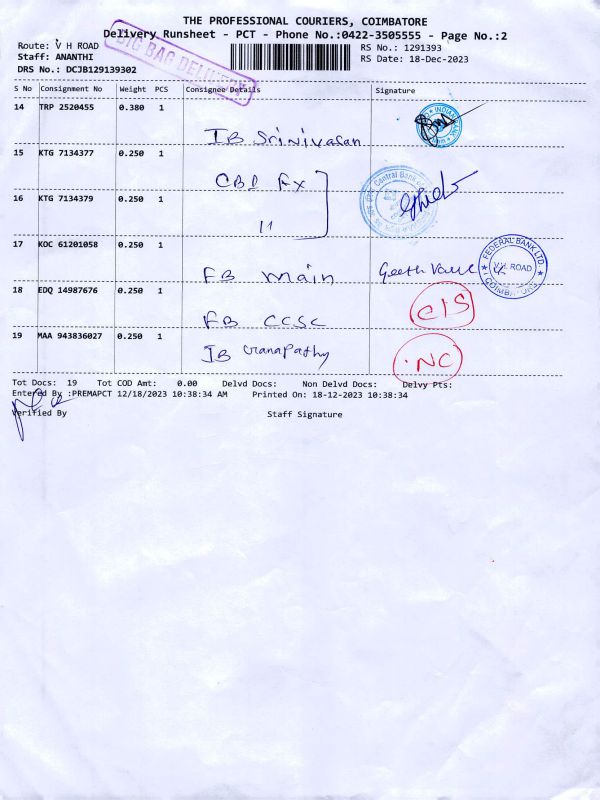 THE PROFESSIONAL COURIERS, COIMBATORE
Delivery Runsheet - PCT - Phone No.:0422-3505555 - Page No.:2
Route: V H ROAD
RS No.: 1291393
Staff: ANANTHI
RS Date: 18-Dec-2023
DRS No.: DCJB129139302
BIG BAG DELIVERY
S No Consignment No Weight PCS Consignee Details Signature
14 TRP 2520455 0.380 1
IB Srinivasan
INDIAN BANK
15 KTG 7134377 0.250 1
CBI FX
Central Bank of
16 KTG 7134379 0.250 1
11
17 KOC 61201058 0.250 1
FB main
Geeth
FEDERAL BANK LTD.
V.H. ROAD
COIMBATORE
18 EDQ 14987676 0.250 1
FB CCSC
CIS
19 MAA 943836027 0.250 1
IB Ganapathy
NC
Tot Docs: 19 Tot COD Amt: 0.00 Delvd Docs: Non Delvd Docs: Delvy Pts:
Entered By :PREMAPCT 12/18/2023 10:38:34 AM Printed On: 18-12-2023 10:38:34
Verified By Staff Signature